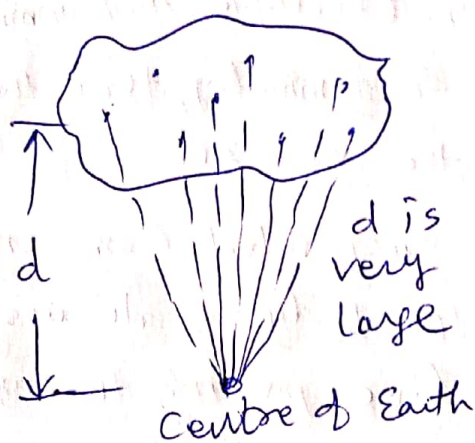 d
d is
very
large
Centre of Earth